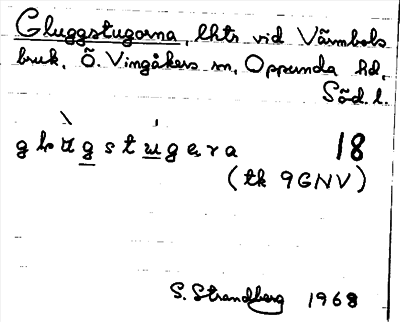 Gluggstugorna, lhts vid Värmbols
bruk, Ö. Vingåkers sn, Oppunda hd,
Söd. l.
18
(tk 9GNV)
S. Strandberg 1968